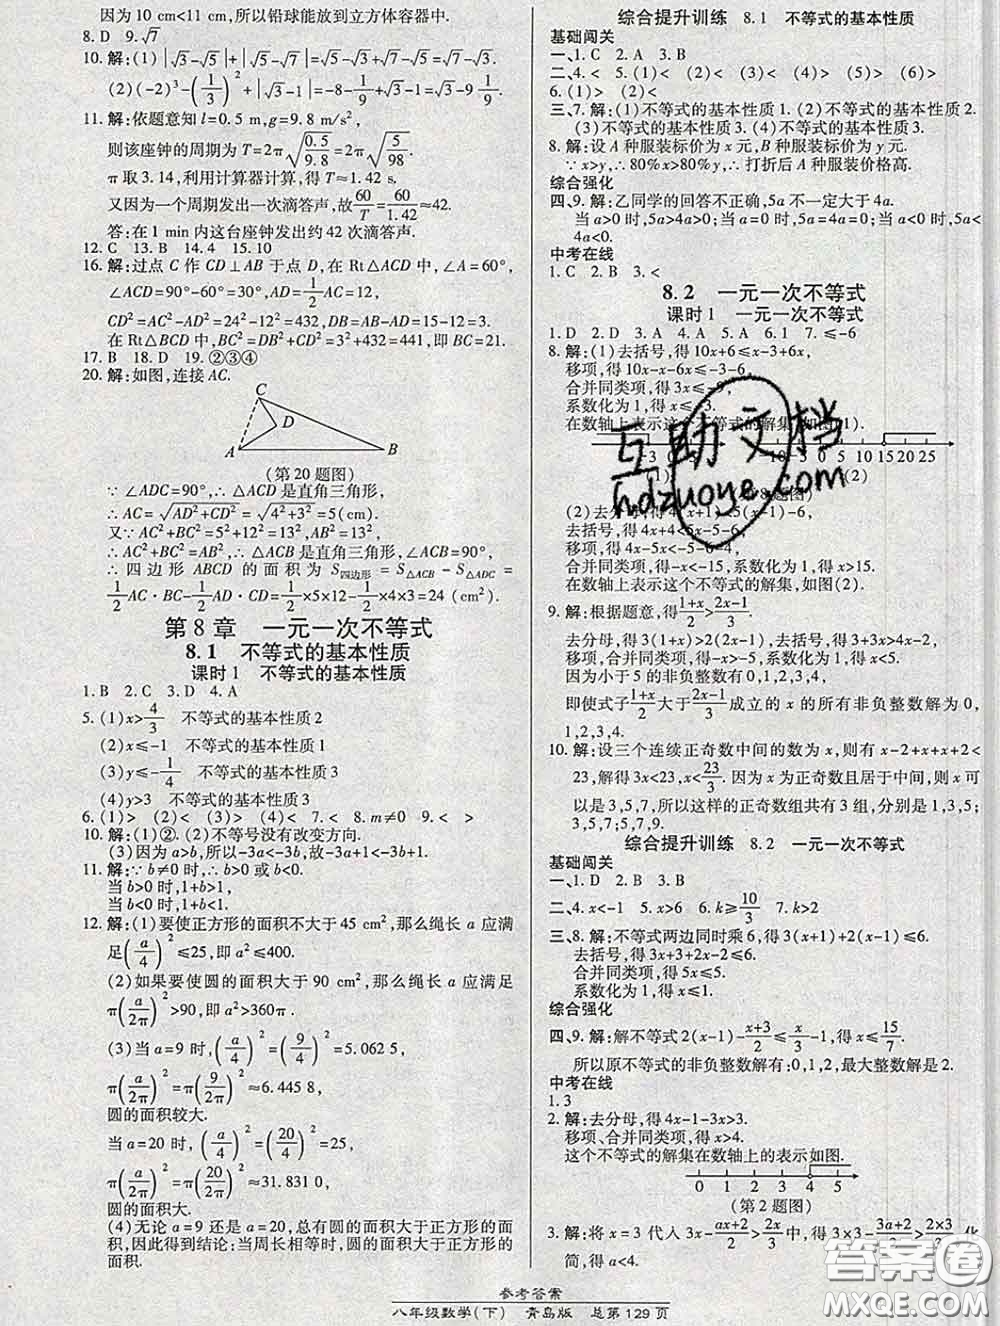 因为 10 cm<11 cm,所以铅球能放到立方体容器中.
8. D 9.√7
10. 解:(1)|√3-√5|+|√5-√7|=√5-√3+√7-√5=√7-√3.
(2)(-2)³-(1/3)²+|√3-1|=-8-1/9+√3-1=√3-9 1/9.
11. 解:依题意知 l=0.5 m,g=9.8 m/s²,
则该座钟的周期为 T=2π√(0.5/9.8)=2π√(5/98).
π 取 3.14,利用计算器计算,得 T≈1.42 s.
又因为一个周期发出一次滴答声,故60/T=60/1.42≈42.
答:在 1 min 内这台座钟发出约 42 次滴答声.
12. C 13. B 14. 4 15. 10
16. 解:过点 C 作 CD⊥AB 于点 D,在 Rt△ACD 中,∠A=60°,
∠ACD=90°-60°=30°,AD=1/2AC=12,
CD²=AC²-AD²=24²-12²=432,DB=AB-AD=15-12=3.
在 Rt△BCD 中,BC²=DB²+CD²=3²+432=441,即 BC=21.
17. B 18. D 19. ②③④
20. 解:如图,连接 AC.
C
D
A B
(第 20 题图)
∵ ∠ADC=90°,∴ △ACD 是直角三角形,
∴ AC=√(AD²+CD²)=√(4²+3²)=5(cm).
又∵ AC²+BC²=5²+12²=13²,AB²=13²,
∴ AC²+BC²=AB²,∴ △ACB 是直角三角形,∠ACB=90°,
∴ 四边形 ABCD 的面积为 S四边形=S△ACB-S△ADC=
1/2AC·BC-1/2AD·CD=1/2×5×12-1/2×4×3=24(cm²).
第 8 章 一元一次不等式
8.1 不等式的基本性质
课时 1 不等式的基本性质
1. B 2. C 3. D 4. A
5. (1)x>4/3 不等式的基本性质 2
(2)x≤-1 不等式的基本性质 1
(3)y≤-1/4 不等式的基本性质 3
(4)y>3 不等式的基本性质 3
6. (1)> (2)< (3)> (4)< 7. < 8. m≠0 9. < >
10. 解:(1)②. (2)不等号没有改变方向.
(3)因为 a>b,所以-3a<-3b,故-3a+1<-3b+1.
11. 解:∵ b≠0 时,∴ b>0 或 b<0.
当 b>0 时,1+b>1,
当 b<0 时,1+b<1.
12. 解:(1)要使正方形的面积不大于 45 cm²,那么绳长 a 应满
足(a/4)²≤25,即 a²≤400.
(2)如果要使圆的面积大于 90 cm²,那么绳长 a 应满足
π(a/2π)²>90,即 a²>360π.
(3)当 a=9 时,(a/4)²=(9/4)²=5.062 5,
π(a/2π)²=π(9/2π)²≈6.445 8,
圆的面积较大.
当 a=20 时,(a/4)²=(20/4)²=25,
π(a/2π)²=π(20/2π)²≈31.831 0,
圆的面积大.
(4)无论 a=9 还是 a=20,总有圆的面积大于正方形的面
积,因此得到结论:当周长相等时,圆的面积大于正方形的
面积.
综合提升训练 8.1 不等式的基本性质
基础闯关
一、1. C 2. A 3. B
二、4. < 5. (1)> (2)< (3)< (4)> (5)> (6)>
6. (1)> (2)<
三、7. 解:(1)不等式的基本性质 1. (2)不等式的基本性质 2.
(3)不等式的基本性质 3. (4)不等式的基本性质 3.
8. 解:设 A 种服装标价为 x 元,B 种服装标价为 y 元.
∵ x>y,∴ 80%x>80%y,∴ 打折后 A 种服装价格高.
综合强化
四、9. 解:乙同学的回答不正确,5a 不一定大于 4a.
当 a>0 时,5a>4a>0;当 a=0 时,5a=4a=0;当 a<0 时,5a<
4a<0.
中考在线
1. C 2. B 3. <
8.2 一元一次不等式
课时 1 一元一次不等式
1. D 2. D 3. A 4. A 5. A 6. 1 7. ≤-6
8. 解:(1)去括号,得 10x+6≤x-3+6x,
移项,得 10x-x-6x≤-3-6,
合并同类项,得 3x≤-9,
系数化为 1,得 x≤-3.
在数轴上表示这个不等式的解集,如图(1).
-3 0 3 -10 -5 0 5 10 15 20 25
(2)
(第 8 题图)
互助文档
hdzuoye.com
(2)去分母,得 4(x+1)<5(x-1)-6,
去括号,得 4x+4<5x-5-6,
移项,得 4x-5x<-5-6-4,
合并同类项,得-x<-15,系数化为 1,得 x>15.
在数轴上表示这个不等式的解集,如图(2).
9. 解:根据题意,得(1+x)/2>(2x-1)/3.
去分母,得 3(1+x)>2(2x-1),去括号,得 3+3x>4x-2,
移项、合并同类项,得-x>-5,系数化为 1,得 x<5.
因为小于 5 的非负整数有 0,1,2,3,4,
即使式子(1+x)/2大于(2x-1)/3成立的 x 的所有非负整数为 0,
1,2,3,4.
10. 解:设三个连续正奇数中间的数为 x,则有 x-2+x+x+2<
23,解得 3x<23,x<23/3. 因为 x 为正奇数且居于中间,则 x 可
以是 3,5,7,所以这样的正奇数组共有 3 组,分别是 1,3,5;
3,5,7;5,7,9.
综合提升训练 8.2 一元一次不等式
基础闯关
一、1. D 2. B 3. A
二、4. x<-1 5. x>6 6. k≥10/3 7. k>2
三、8. 解:不等式两边同时乘 6,得 3(x+1)+2(x-1)≤6.
去括号,得 3x+3+2x-2≤6.
合并同类项,得 5x≤5.
系数化为 1,得 x≤1.
综合强化
四、9. 解:解不等式 2(x-1)-(x+3)/2≤x/3-1,得 x≤15/7.
所以原不等式的非负整数解有:0,1,2,最大整数解是 2.
中考在线
1. 3
2. 解:去分母,得 4x-1-3x>3.
移项、合并同类项,得 x>4.
这个不等式的解集在数轴上的表示如图.
0 1 2 3 4 5
(第 2 题图)
3. 解:将 x=3 代入 3x-(ax+2)/2>2x/3中,得 3×3-(3a+2)/2>(2×3)/3,化
简,得 a<4.
答案圈
参考答案
八年级数学(下) 青岛版 总第 129 页